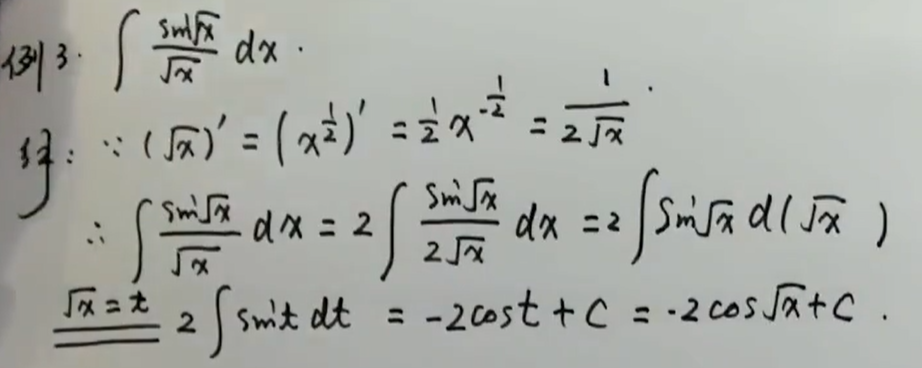 例3. ∫ sin√x/√x dx.
解: ∵ (√x)' = (x^{1/2})' = 1/2 x^{-1/2} = 1/(2√x).
∴ ∫ sin√x/√x dx = 2∫ sin√x/(2√x) dx = 2∫ sin√x d(√x )
√x = t 2∫ sint dt = -2cost + C = -2cos√x + C.